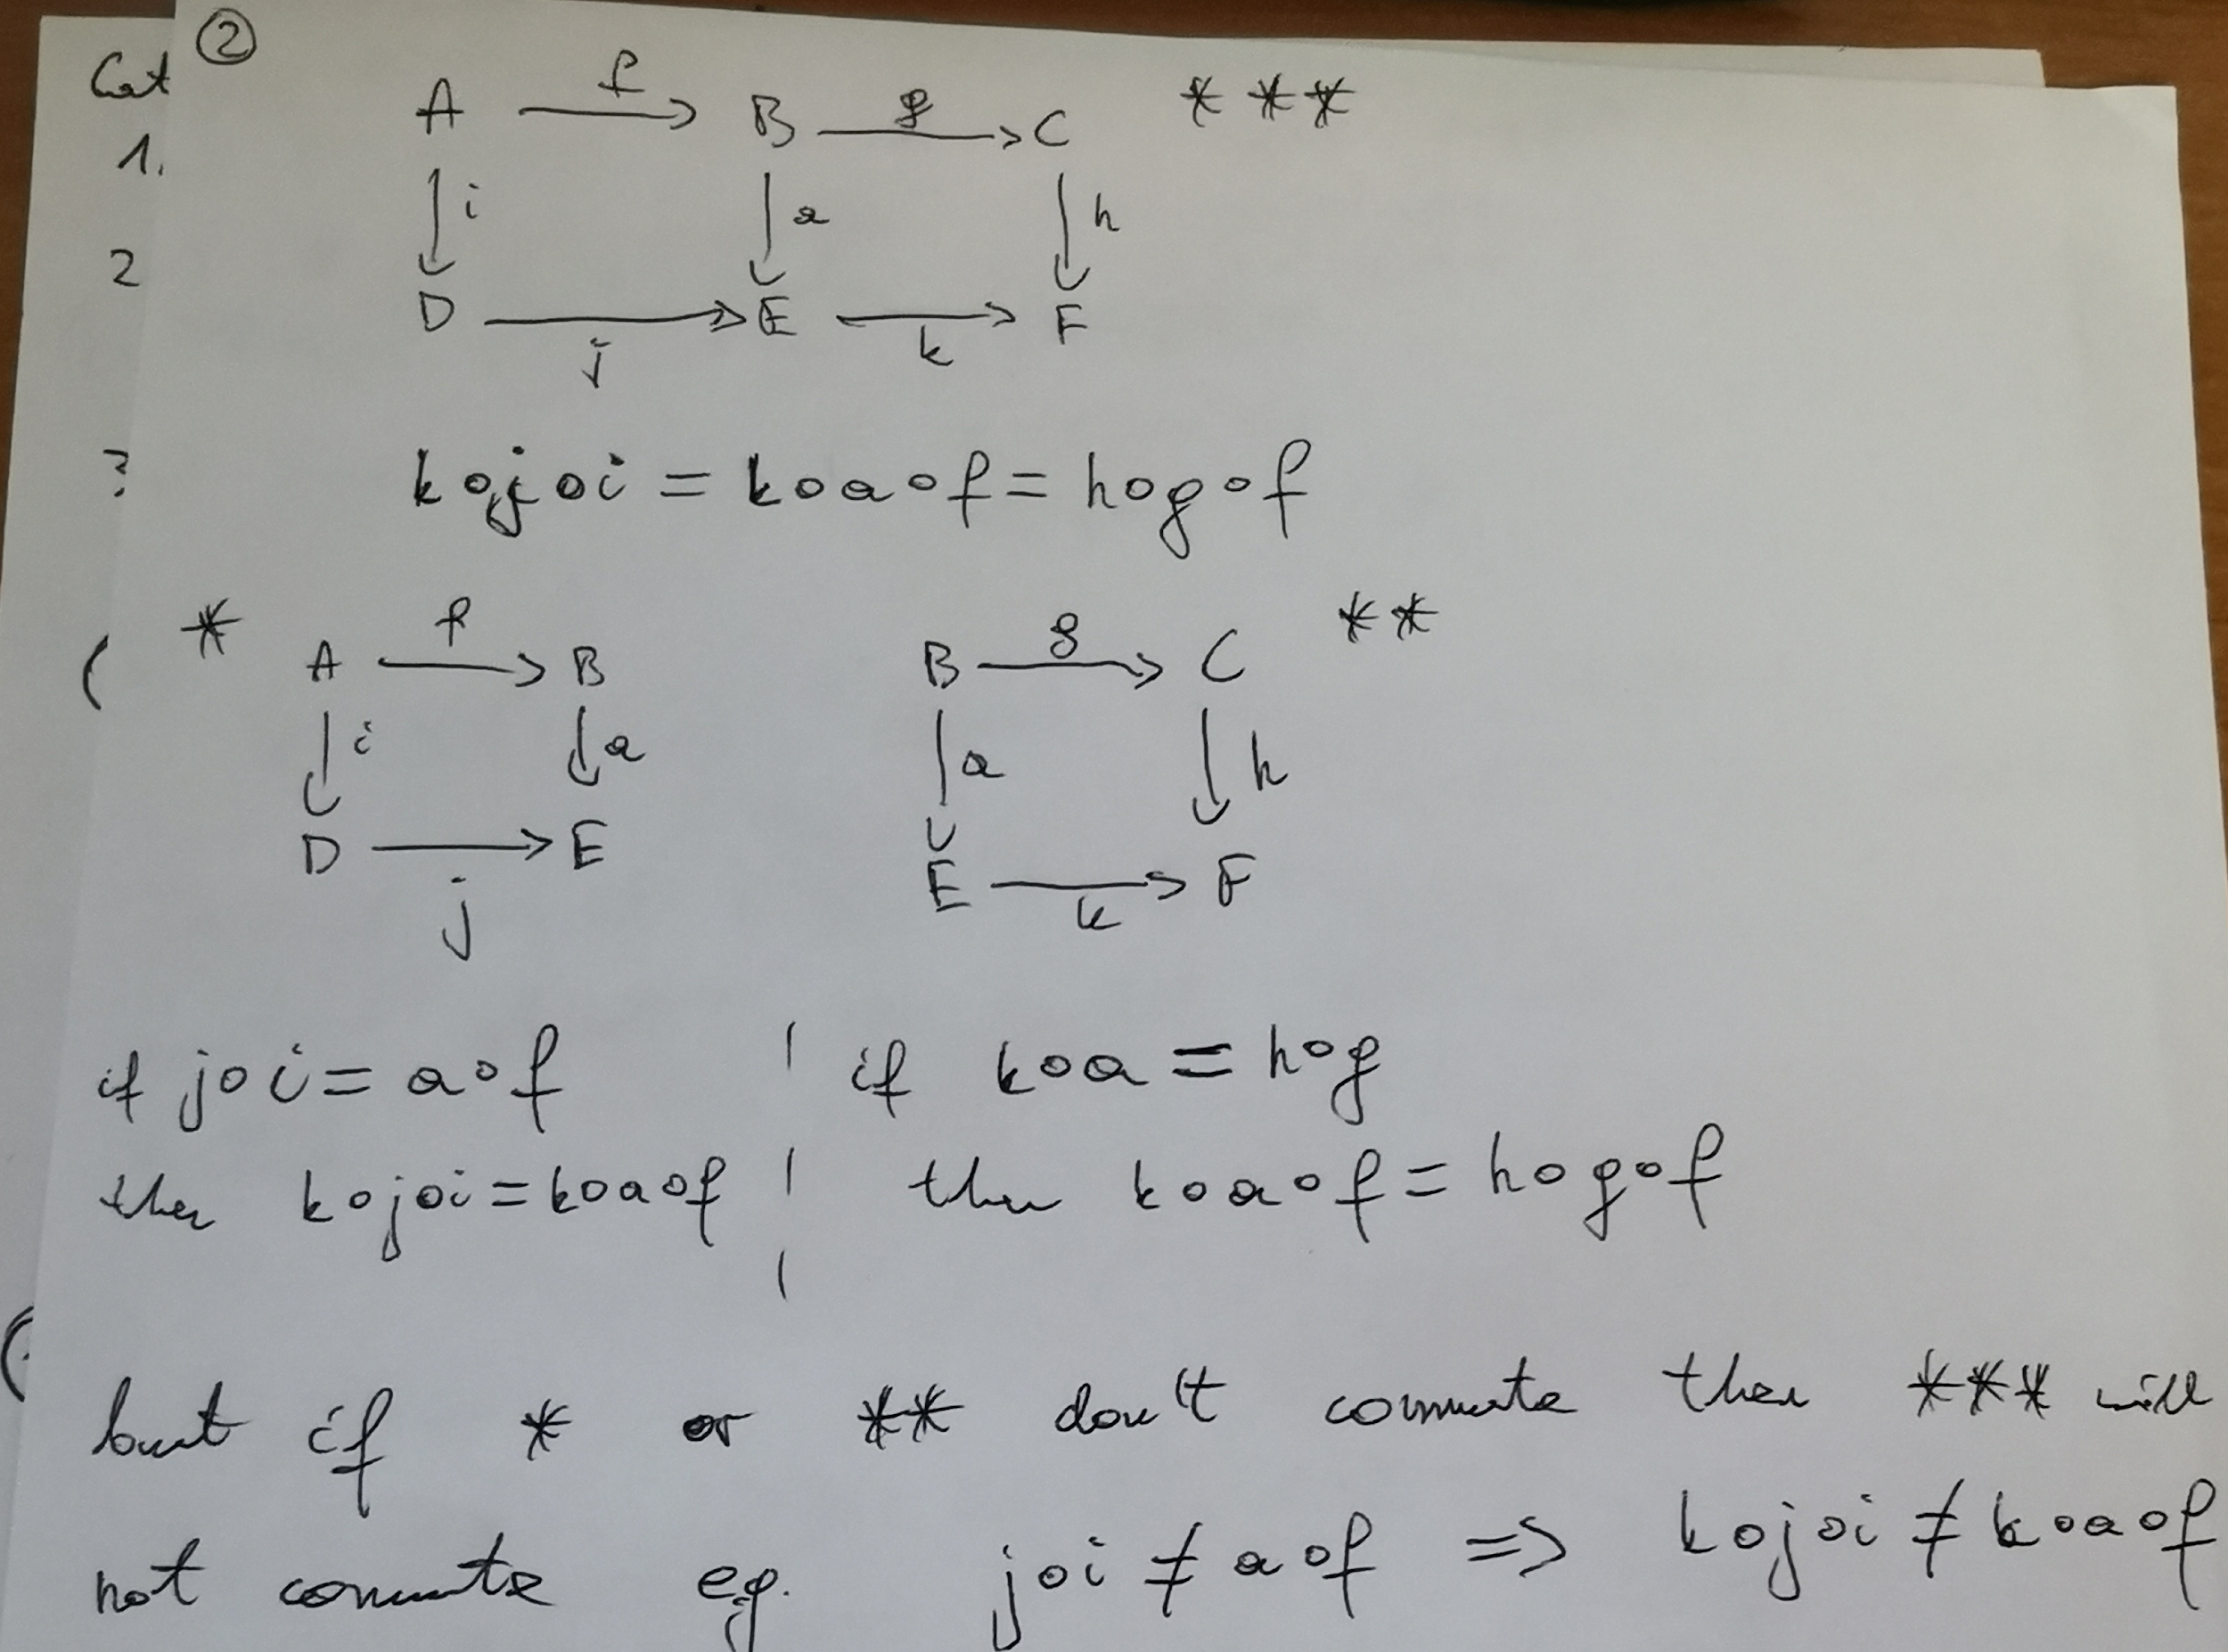 Cat ②
1.
2
?
A f B g C ***
i a h
D j E k F
k∘j∘i = k∘a∘f = h∘g∘f
( * A f B B g C **
i a a h
D j E E k F
if j∘i = a∘f | if k∘a = h∘g
then k∘j∘i = k∘a∘f | then k∘a∘f = h∘g∘f
|
but if * or ** don't commute then *** will
not commute eg. j∘i ≠ a∘f => k∘j∘i ≠ k∘a∘f